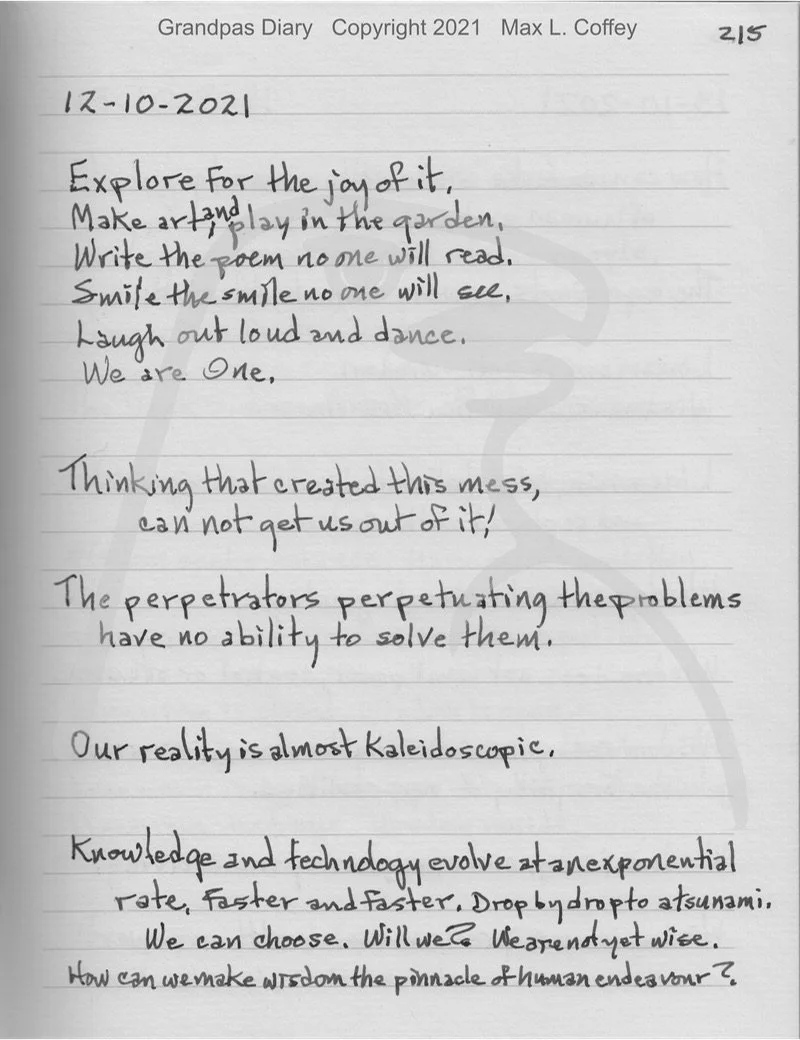 Grandpas Diary Copyright 2021 Max L. Coffey
215
12-10-2021
Explore for the joy of it.
Make art, and play in the garden.
Write the poem no one will read.
Smile the smile no one will see.
Laugh out loud and dance.
We are One.
Thinking that created this mess,
can not get us out of it!
The perpetrators perpetuating the problems
have no ability to solve them.
Our reality is almost Kaleidoscopic.
Knowledge and technology evolve at an exponential
rate, faster and faster. Drop by drop to a tsunami.
We can choose. Will we? We are not yet wise.
How can we make wisdom the pinnacle of human endeavour?